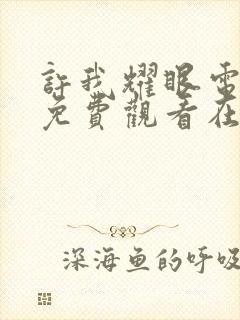 許我耀眼電
免費觀看在
深海鱼的呼吸